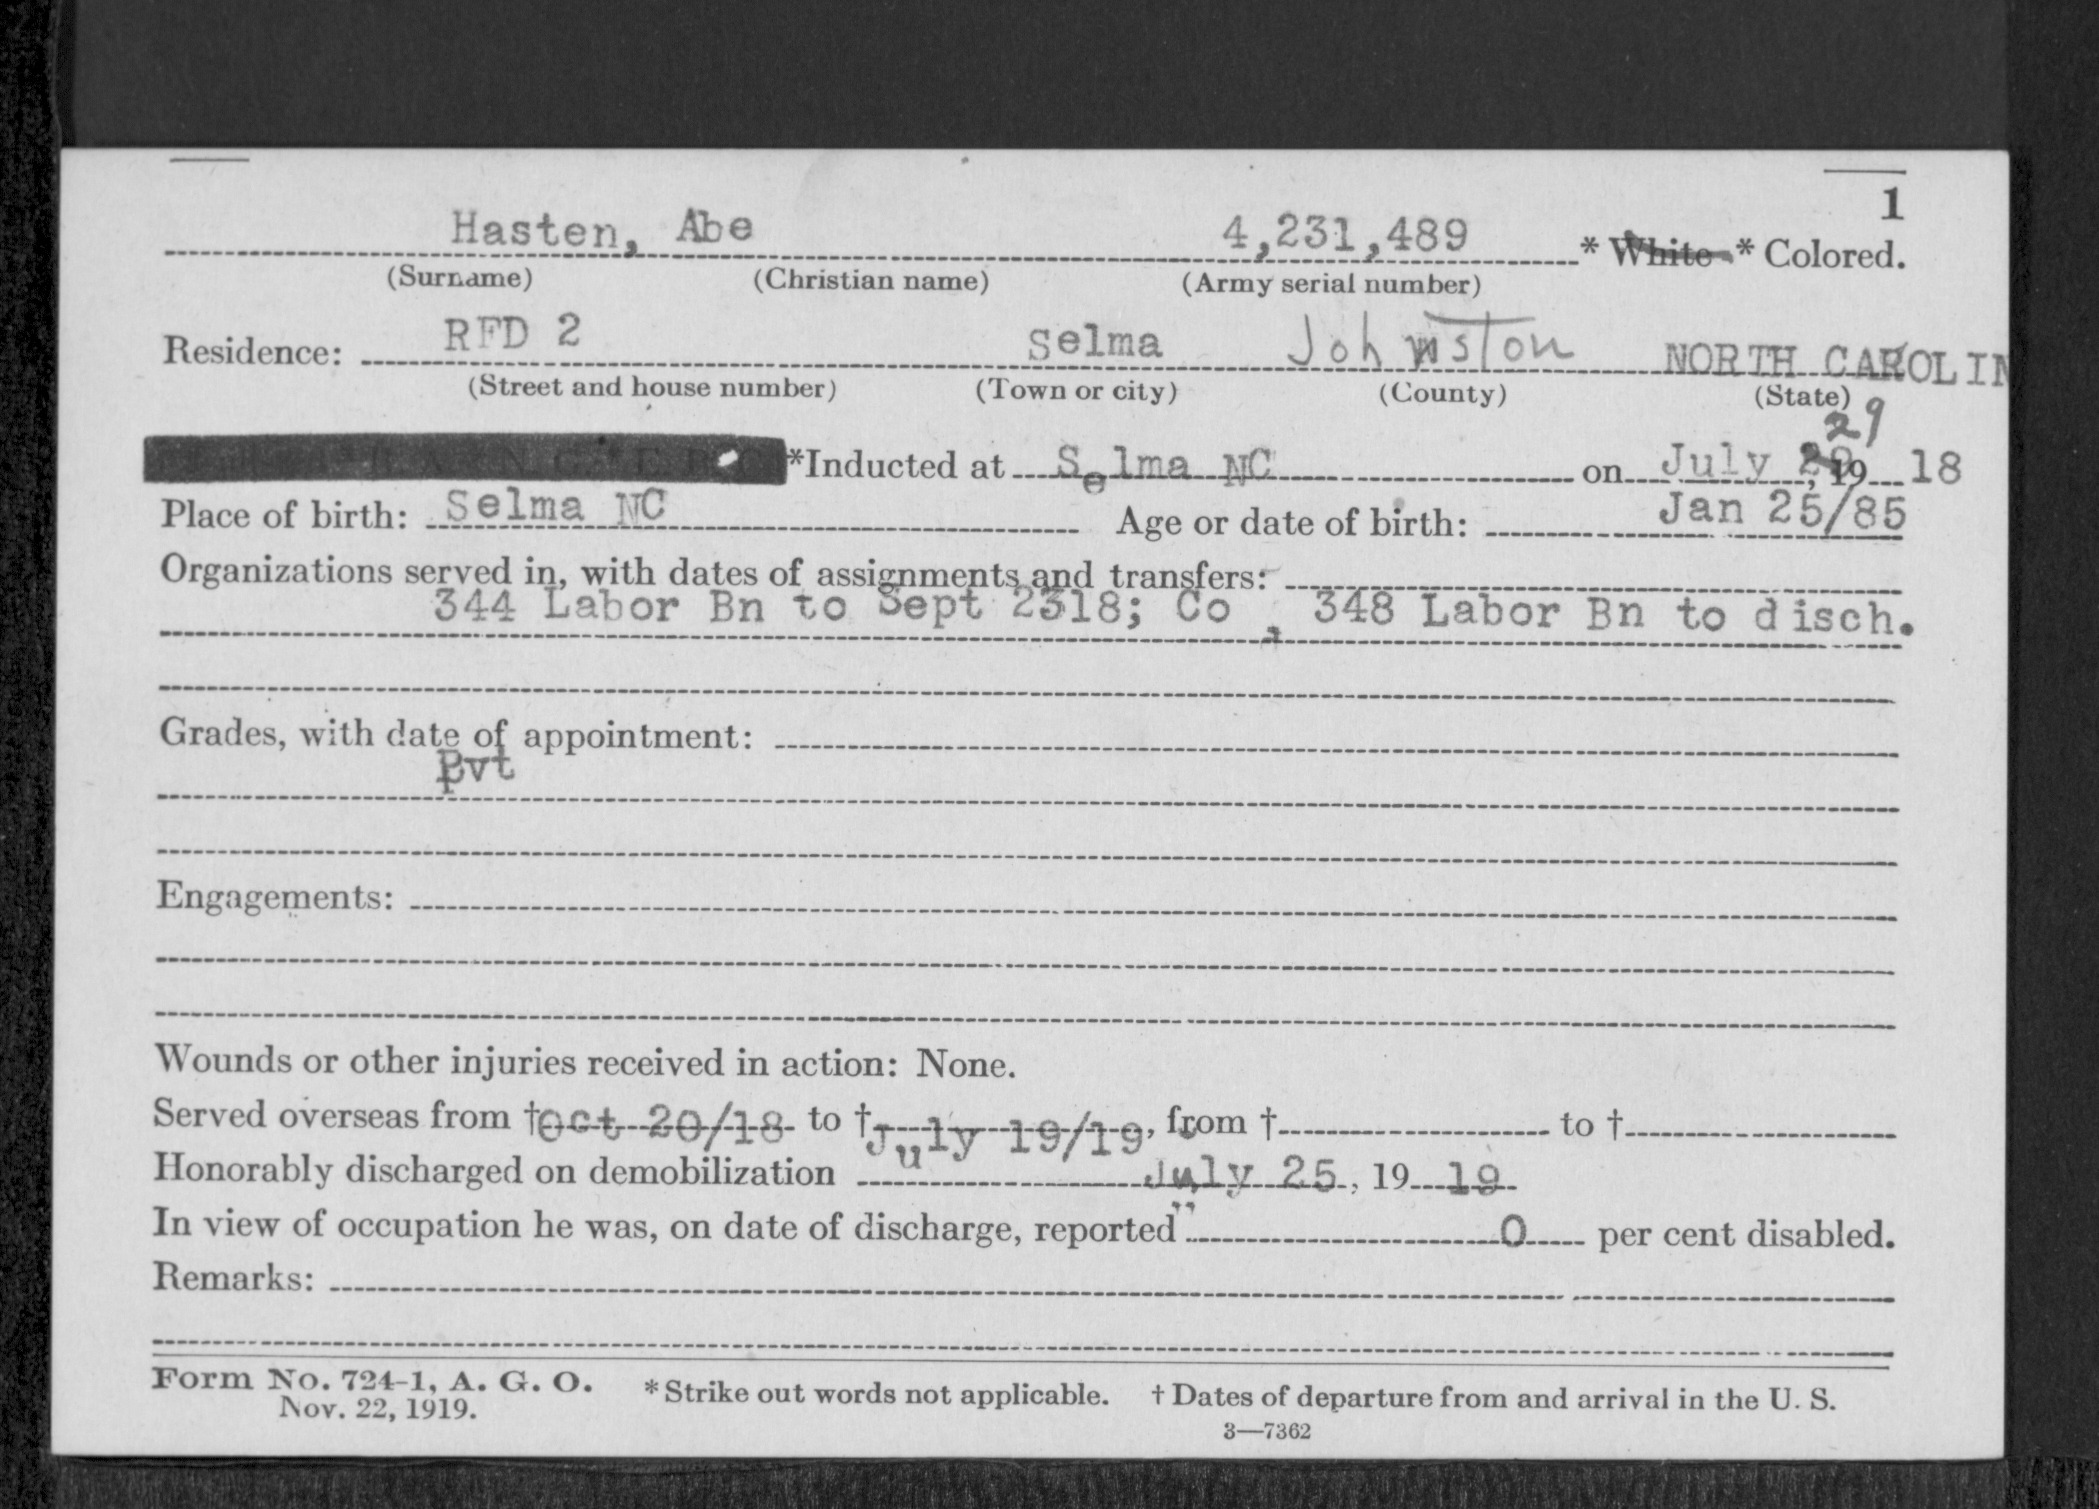 1
Hasten, Abe 4,231,489 * White * Colored.
(Surname) (Christian name) (Army serial number)
Residence: RFD 2 Selma Johnston NORTH CAROLIN
(Street and house number) (Town or city) (County) (State)
29
*Inducted at Selma NC on July 20, 19 18
Place of birth: Selma NC Age or date of birth: Jan 25/85
Organizations served in, with dates of assignments and transfers:
344 Labor Bn to Sept 2318; Co , 348 Labor Bn to disch.
Grades, with date of appointment:
Pvt
Engagements:
Wounds or other injuries received in action: None.
Served overseas from † Oct 20/18 to † July 19/19, from † to †
Honorably discharged on demobilization July 25, 19 19
In view of occupation he was, on date of discharge, reported 0 per cent disabled.
Remarks:
Form No. 724-1, A. G. O. * Strike out words not applicable. † Dates of departure from and arrival in the U. S.
Nov. 22, 1919.
3—7362